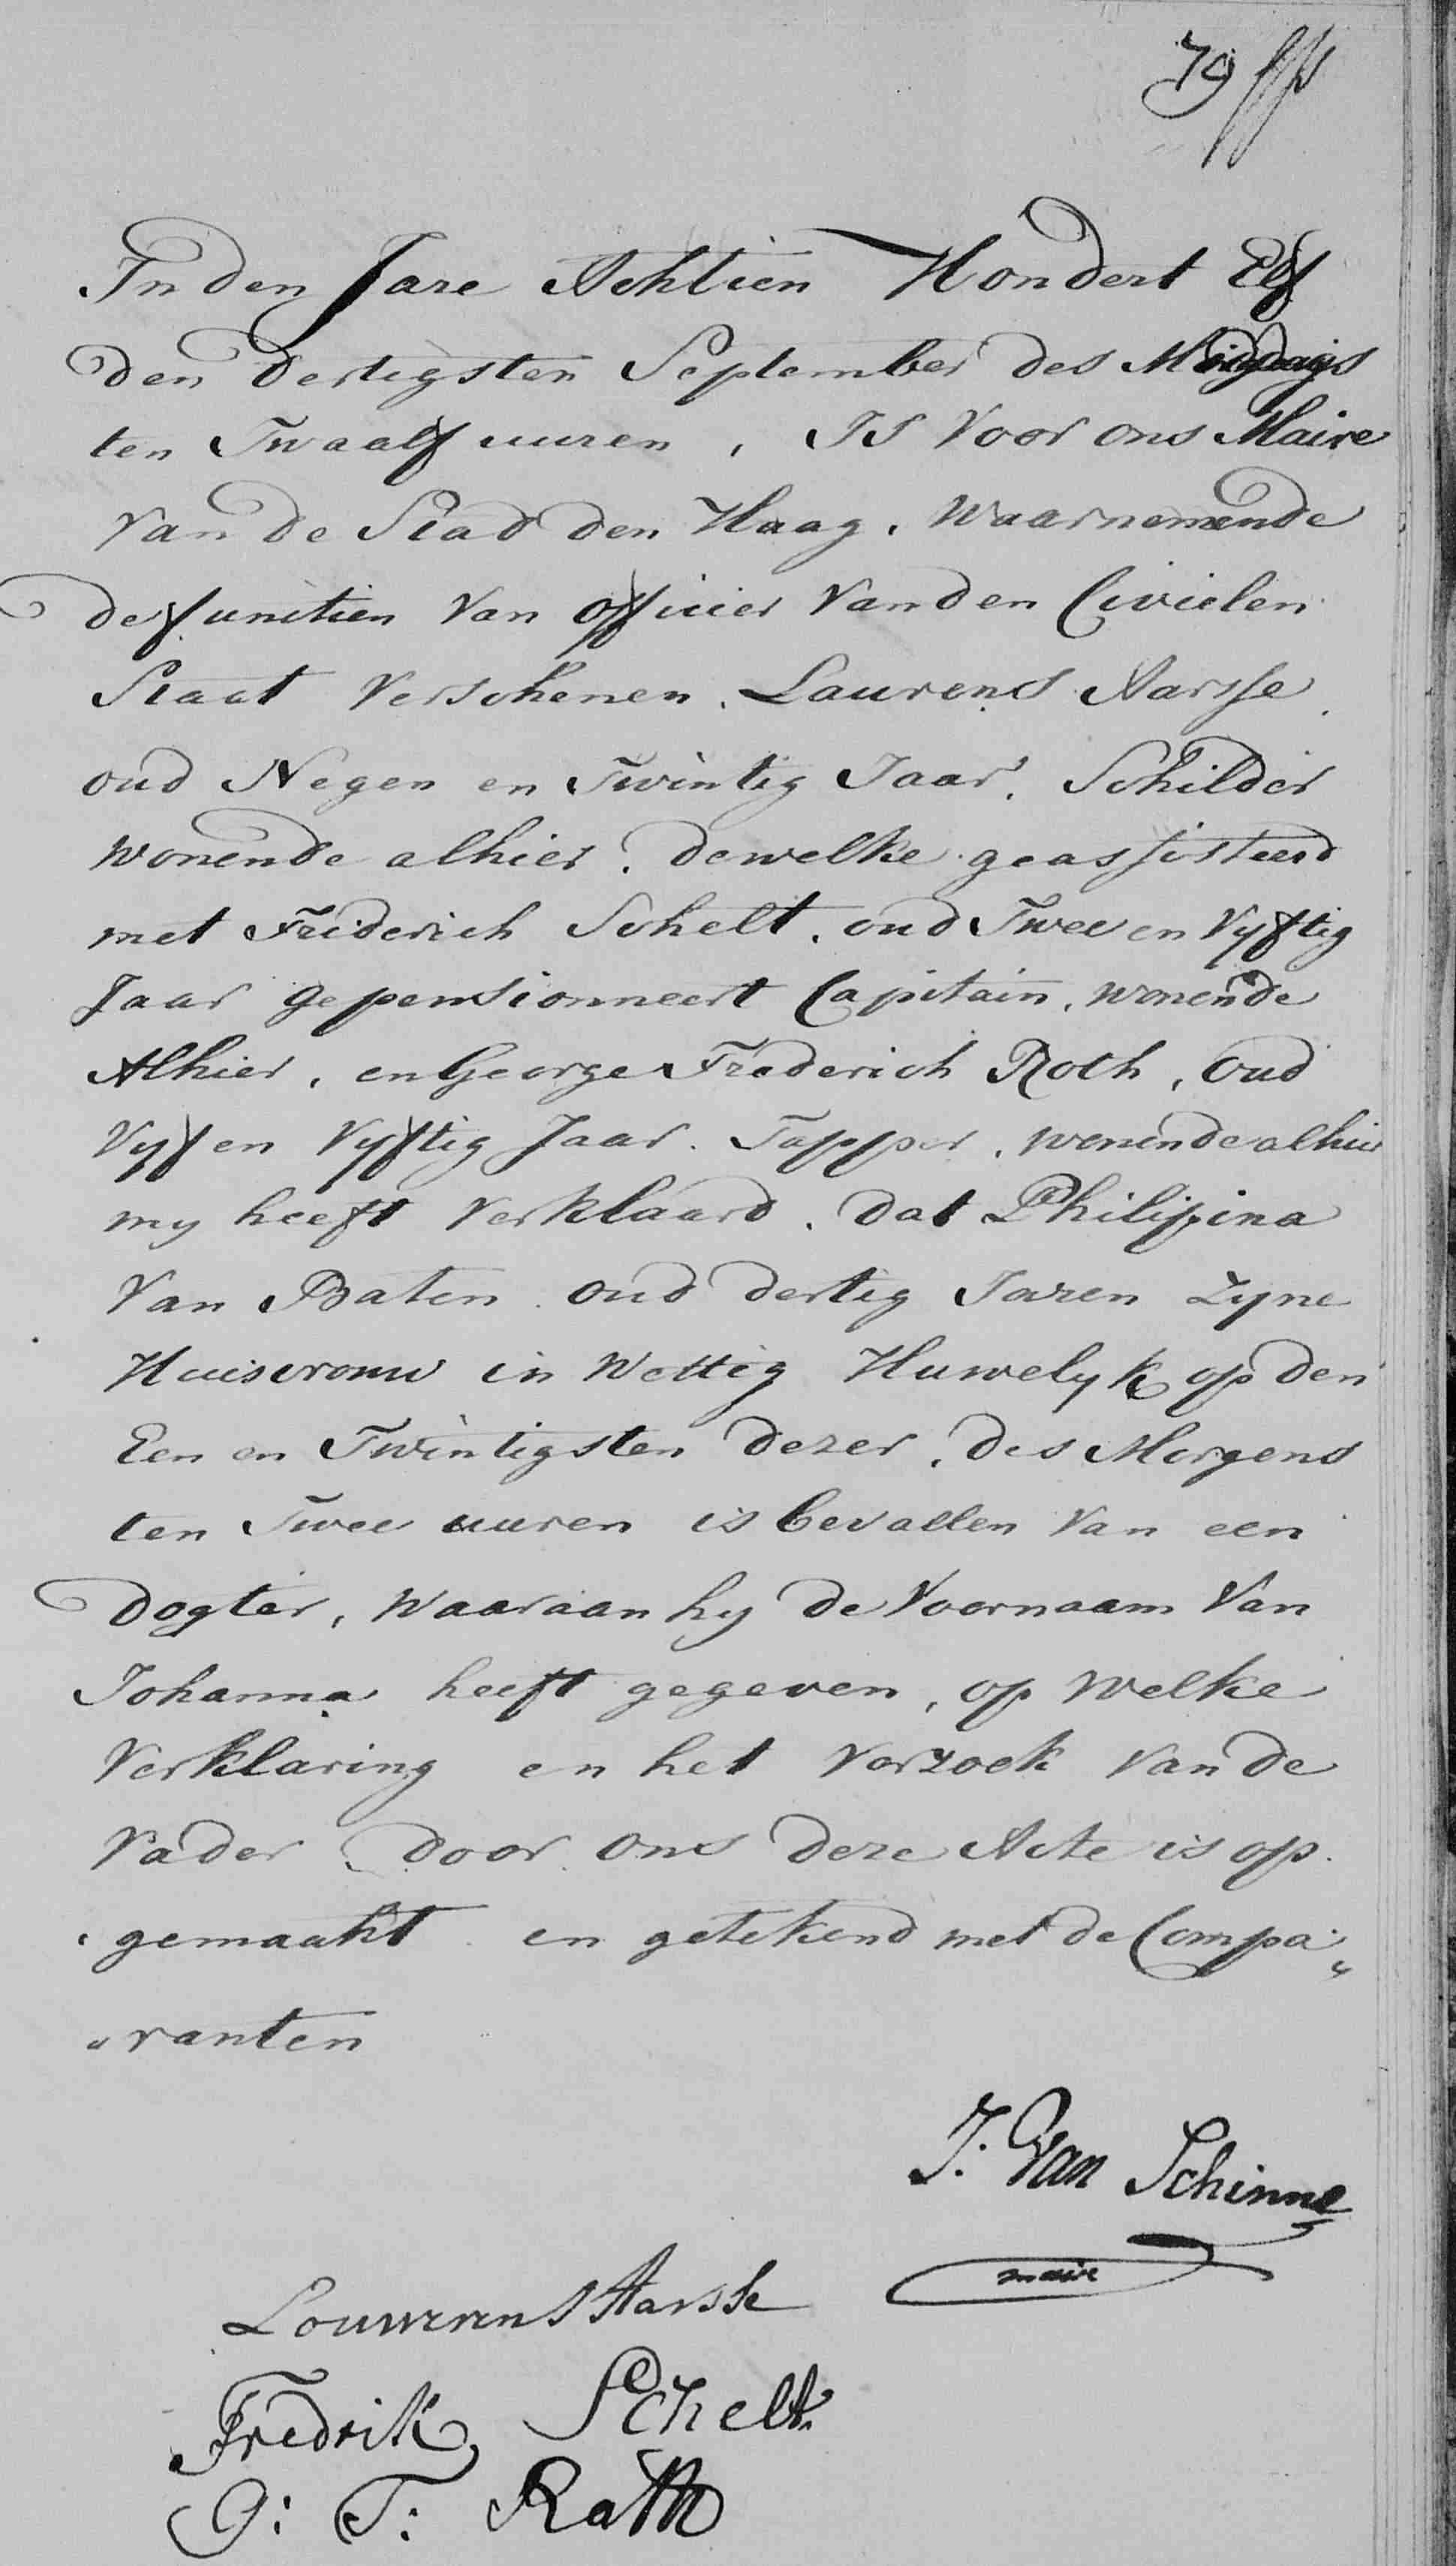 79
In den Jare Achtien Hondert Elf
den dertigsten September des Middags
ten Twaalf uuren, IS Voor ons Maire
van de Stad den Haag. waarnemende
de functien van officier van den Civielen
Staat Verschenen. Laurens Aarsse
oud Negen en Twintig Jaar. Schilder
wonende alhier. dewelke geassisteerd
met Friderich Schelt. oud Twee en Vyftig
Jaar gepensionneert Capitain. wonende
Alhier, en George Frederich Roth, oud
Vyf en Vyftig Jaar. Tapper. wonende alhier
my heeft Verklaard. dat Philippina
van Baten oud dertig Jaren Zyne
Huisvrouw in Wettig Huwelyk op den
Een en Twintigsten dezer, des Morgens
ten Twee uuren is bevallen van een
dogter, waaraan hy de Voornaam van
Johanna heeft gegeven, op welke
Verklaring en het Verzoek van de
Vader door ons deze Acte is op
gemaakt en getekend met de Compa„
„ranten
J. van Schinne
maire
Louwerens Aarsse
Fredrik Schelt
G: F: Rath